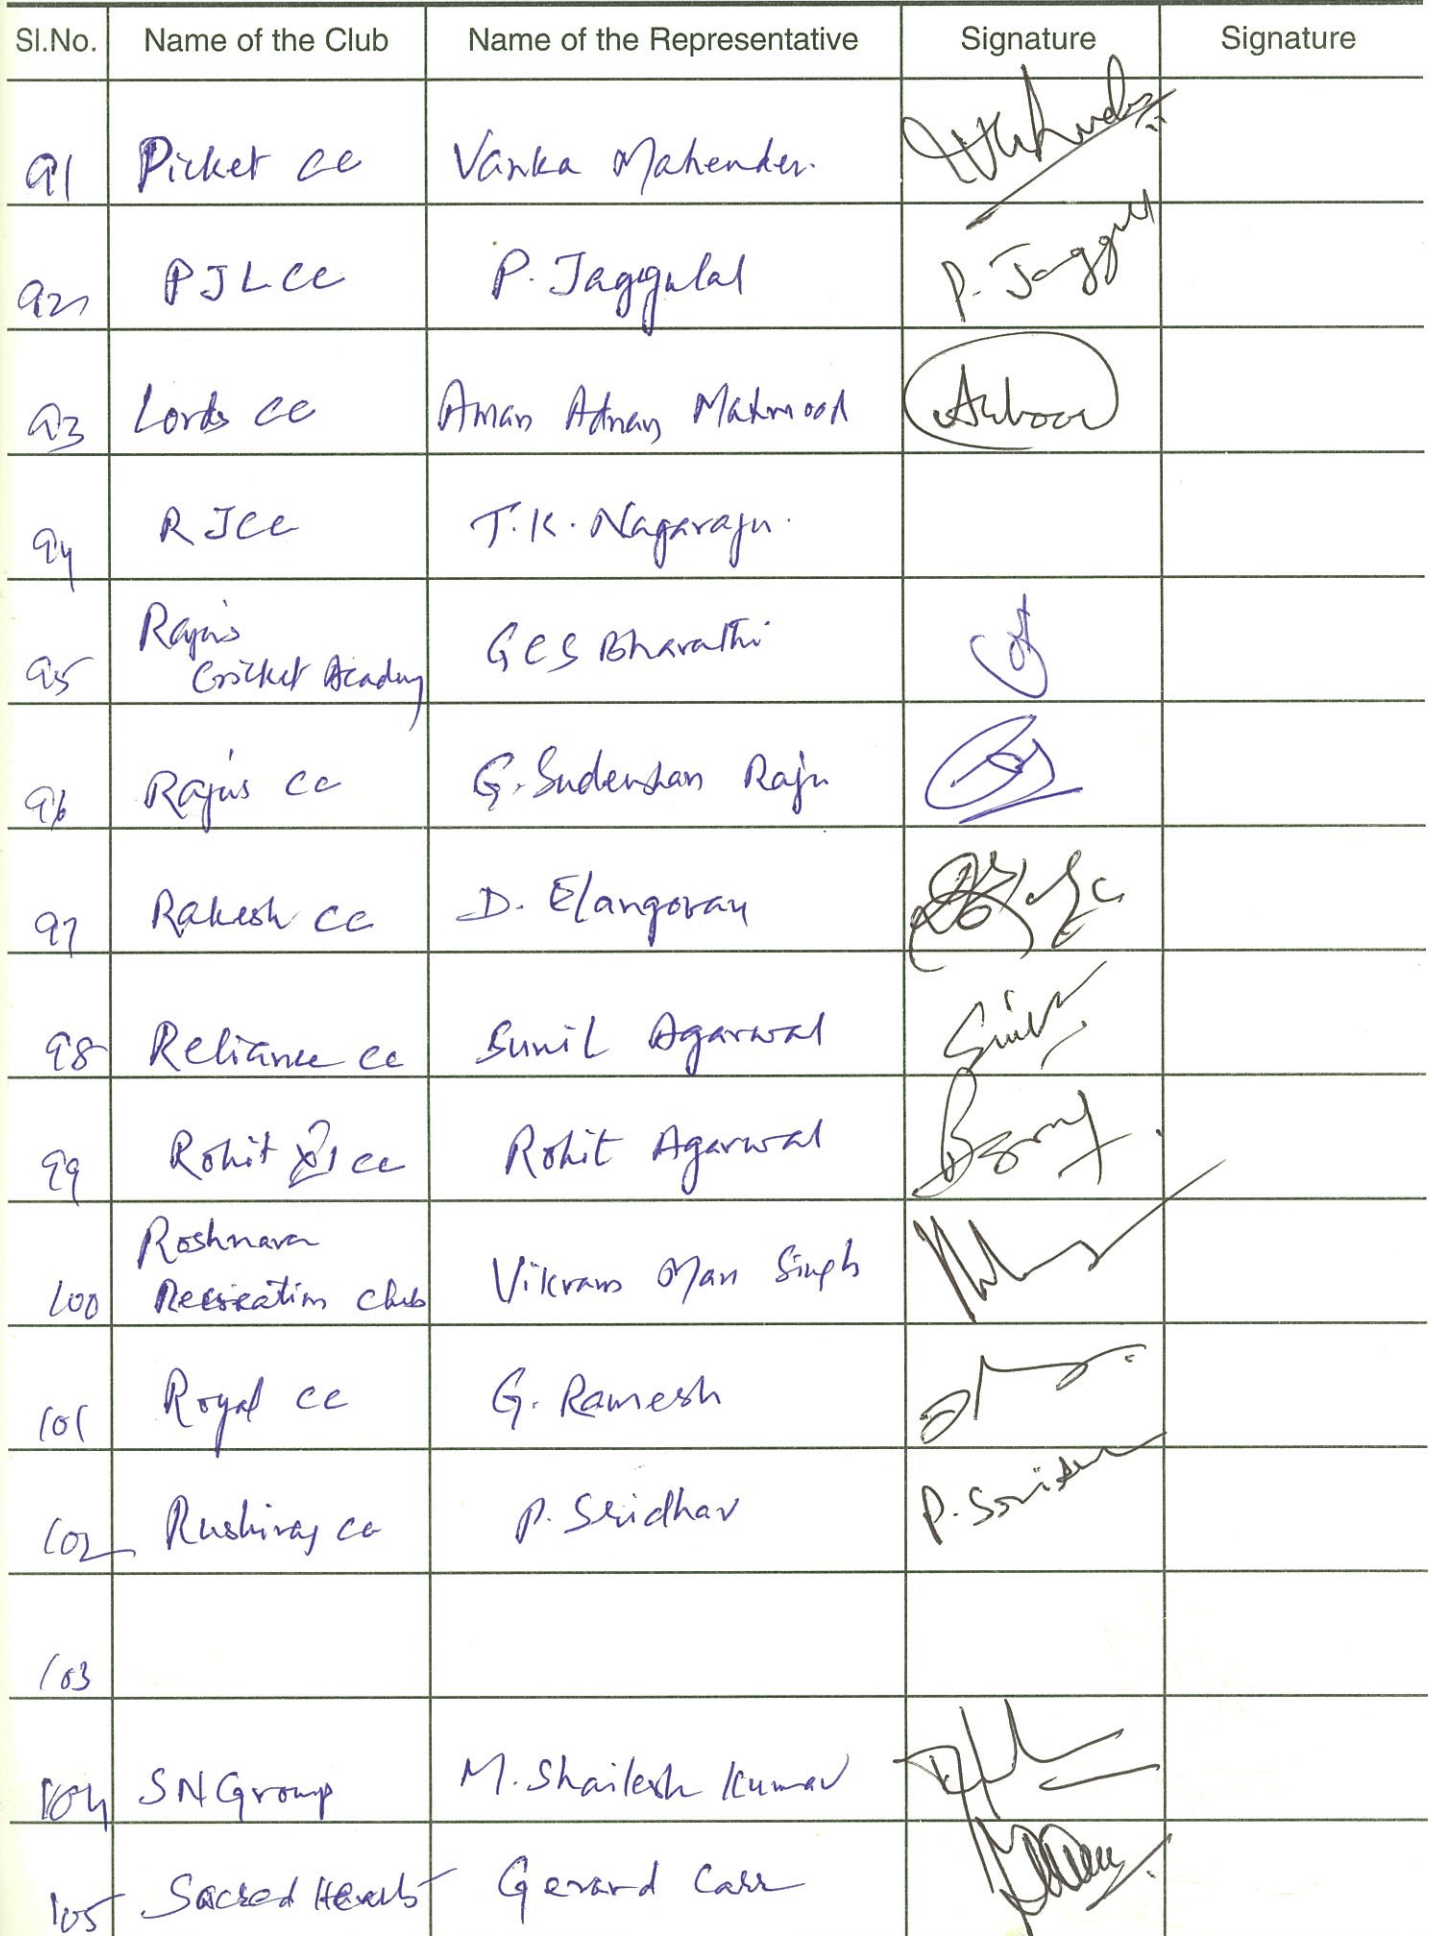 Sl.No. Name of the Club Name of the Representative Signature Signature
91 Picket CC Vanka Mahender.
92 PJLCC P. Jaggulal P. Jaggul
93 Lords CC Aman Adnan Mahmood
94 RJCC T.K. Nagaraju.
95 Raju's GCS Bharathi
Cricket Academy
96 Raju's CC G. Sudershan Raju
97 Rakesh CC D. Elangovan
98 Reliance CC Sunil Agarwal
99 Rohit CC Rohit Agarwal
100 Roshnara Vikram Man Singh
Recreation Club
101 Royal CC G. Ramesh
102 Rushiraj CC P. Sridhar
103
104 SN Group M. Shailesh Kumar
105 Sacred Hearts Gerard Carr